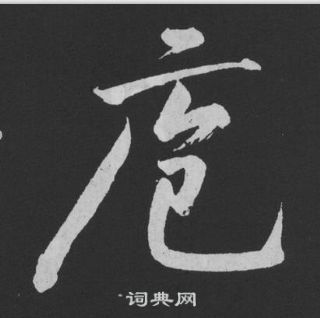 庖
词典网